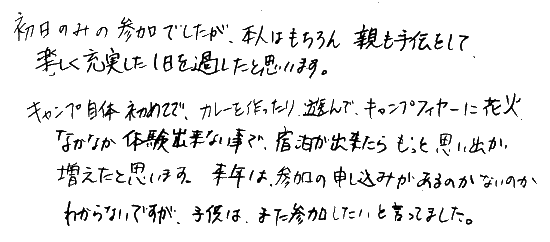 初日のみの参加でしたが、本人はもちろん 親も手伝をして
楽しく充実した1日を過したと思います。
キャンプ自体初めてで、カレーを作ったり遊んで、キャンプファイヤーに花火
なかなか体験出来ない事で、宿泊が出来たらもっと思い出が
増えたと思います。来年は、参加の申し込みがあるのかないのか
わからないですが、子供は、また参加したいと言ってました。